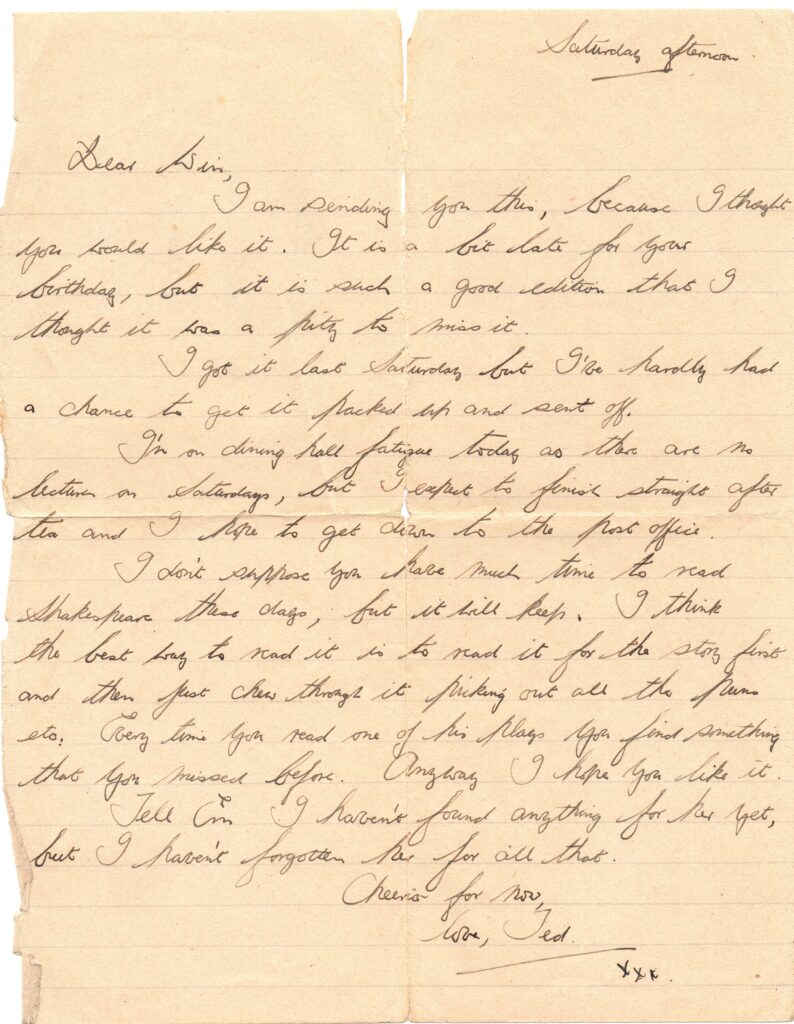 Saturday afternoon
Dear Win,
I am sending you this, because I thought
you would like it. It is a bit late for your
birthday, but it is such a good edition that I
thought it was a pity to miss it.
I got it last Saturday but I've hardly had
a chance to get it packed up and sent off.
I'm on dining hall fatigue today as there are no
lectures on Saturdays, but I expect to finish straight after
tea and I hope to get down to the post office.
I don't suppose you have much time to read
Shakespeare these days, but it will keep. I think
the best way to read it is to read it for the story first
and then just chew through it picking out all the puns
etc. Every time you read one of his plays you find something
that you missed before. Anyway I hope you like it.
Tell Em I haven't found anything for her yet,
but I haven't forgotten her for all that.
Cheerio for now,
love, Ted.
xxx.